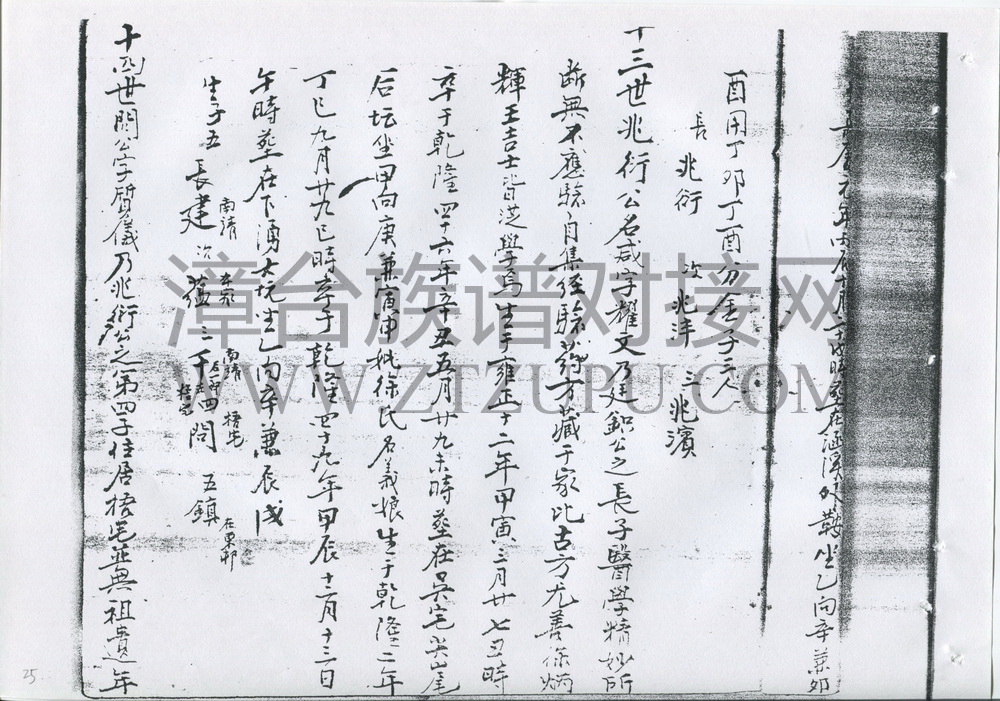 在涵溪外鞍坐乙向辛兼卯
酉用丁卯丁酉分金子三人
長 兆衍 次 兆洋 三 兆濱
十三世兆衍公名咸字耀文乃廷鋁公之長子醫學精妙所
断無不應驗自集经驗葯方藏于家比古方尤善徐炳
輝王吉士皆從學焉生于雍正十二年甲寅三月廿七丑時
卒于乾隆四十六年辛丑五月廿九未時塟在吳宅尖山尾
后坛坐甲向庚兼寅申妣徐氏名義娘生于乾隆二年
丁巳九月廿九巳時卒于乾隆四十九年甲辰十二月十三日
午時塟在下湧大坑坐乙向辛兼辰戌
生子五 長建 南靖 次蘊 三千 南靖 四問 梧宅 五鎮 在東邨
十四世問公字質儀乃兆衍公之第四子住居梧宅無祖遺年
漳台族谱对接网
WWW.ZTZUPU.COM
25